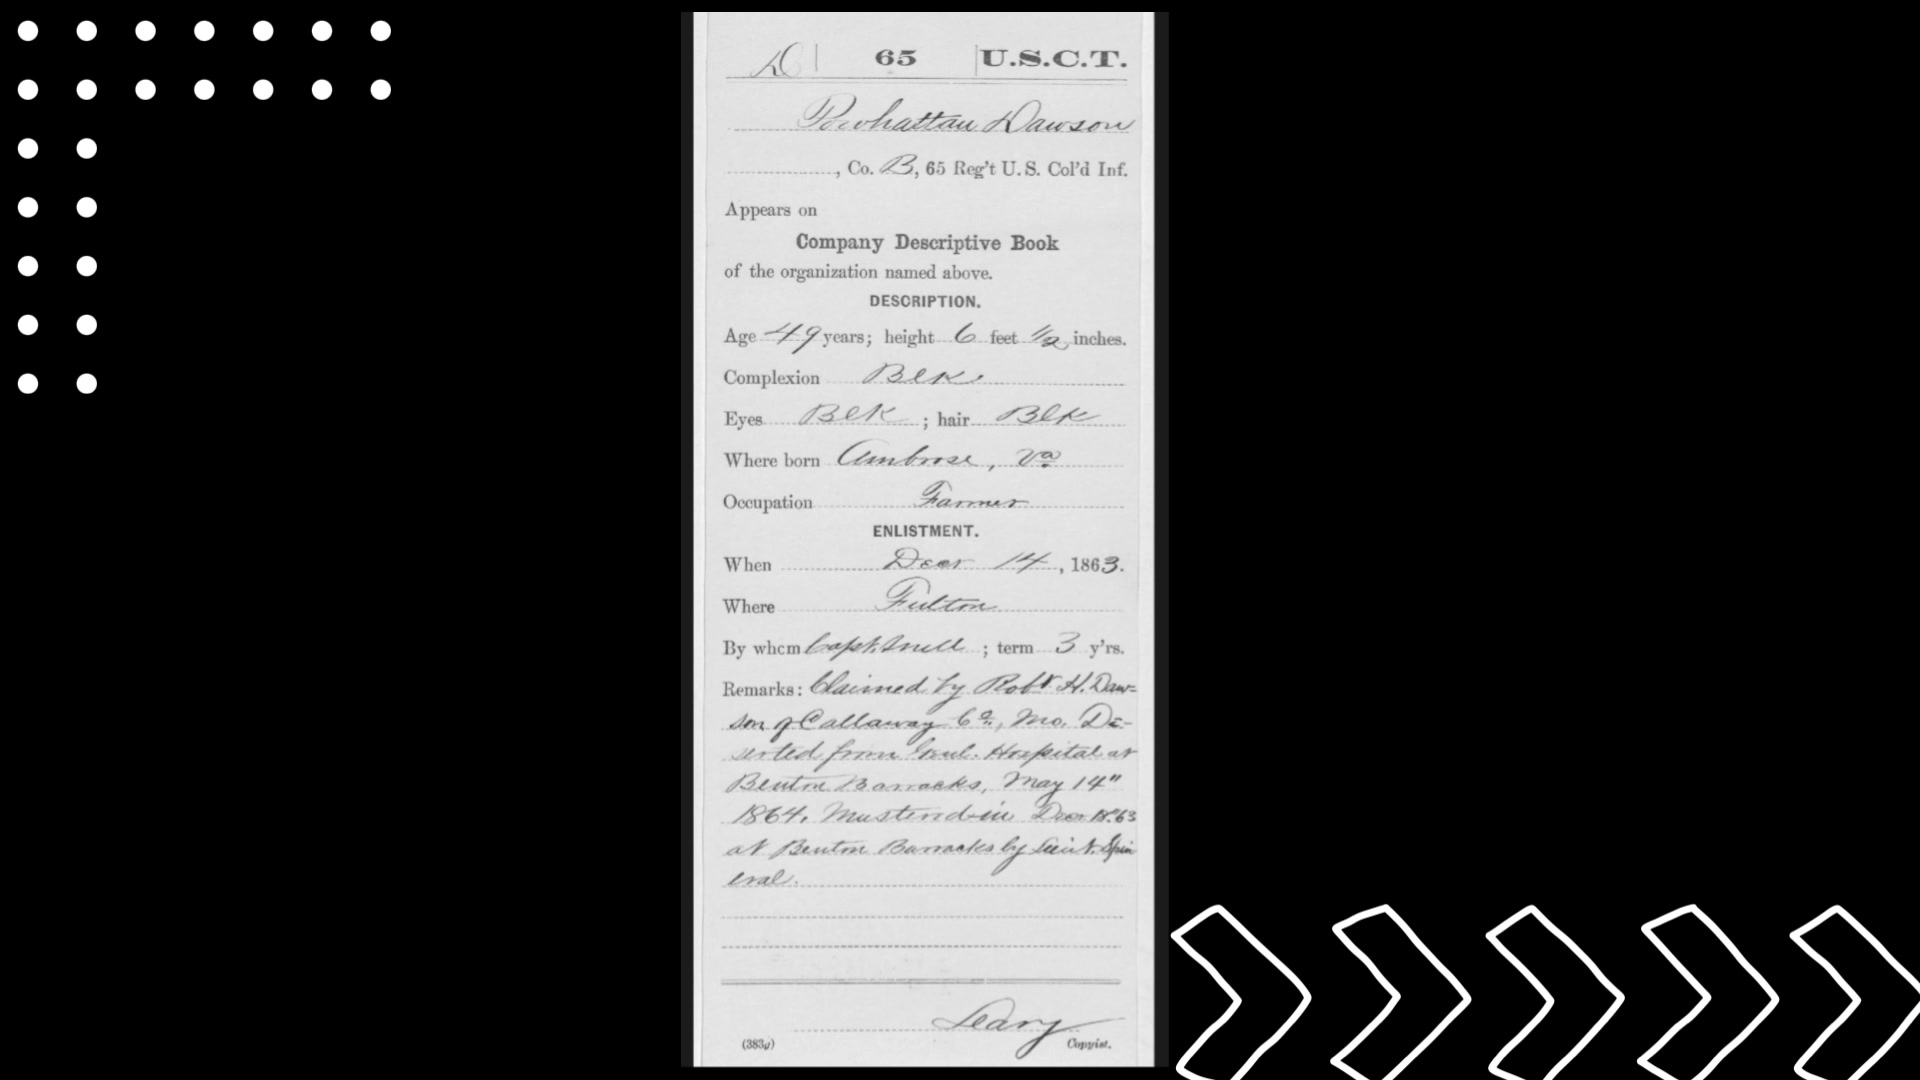 D 65 U.S.C.T.
Powhattan Dawson
, Co. B, 65 Reg't U.S. Col'd Inf.
Appears on
Company Descriptive Book
of the organization named above.
DESCRIPTION.
Age 49 years; height 6 feet 1/2 inches.
Complexion Blk
Eyes Blk ; hair Blk
Where born Ambrose, Va
Occupation Farmer
ENLISTMENT.
When Decr 14, 1863.
Where Fulton
By whom Capt. ; term 3 y'rs.
Remarks: Claimed by Robt H. Daw-
son of Callaway Co., Mo. De-
serted from Genl. Hospital at
Benton Barracks, May 14"
1864. Mustered in Decr 18.63
at Benton Barracks by Lieut. Spin
eral.
Leary
(383g) Copyist.